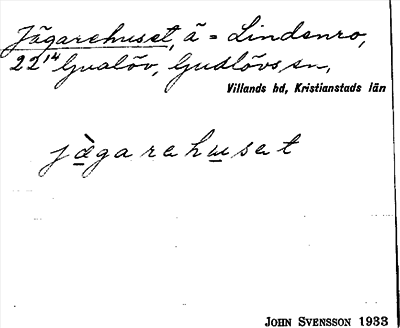 Jägarehuset, ä = Lindenro,
22¹⁴ Gualöv, Gualövs sn,
Villands hd, Kristianstads län
jàgarehuset
JOHN SVENSSON 1933